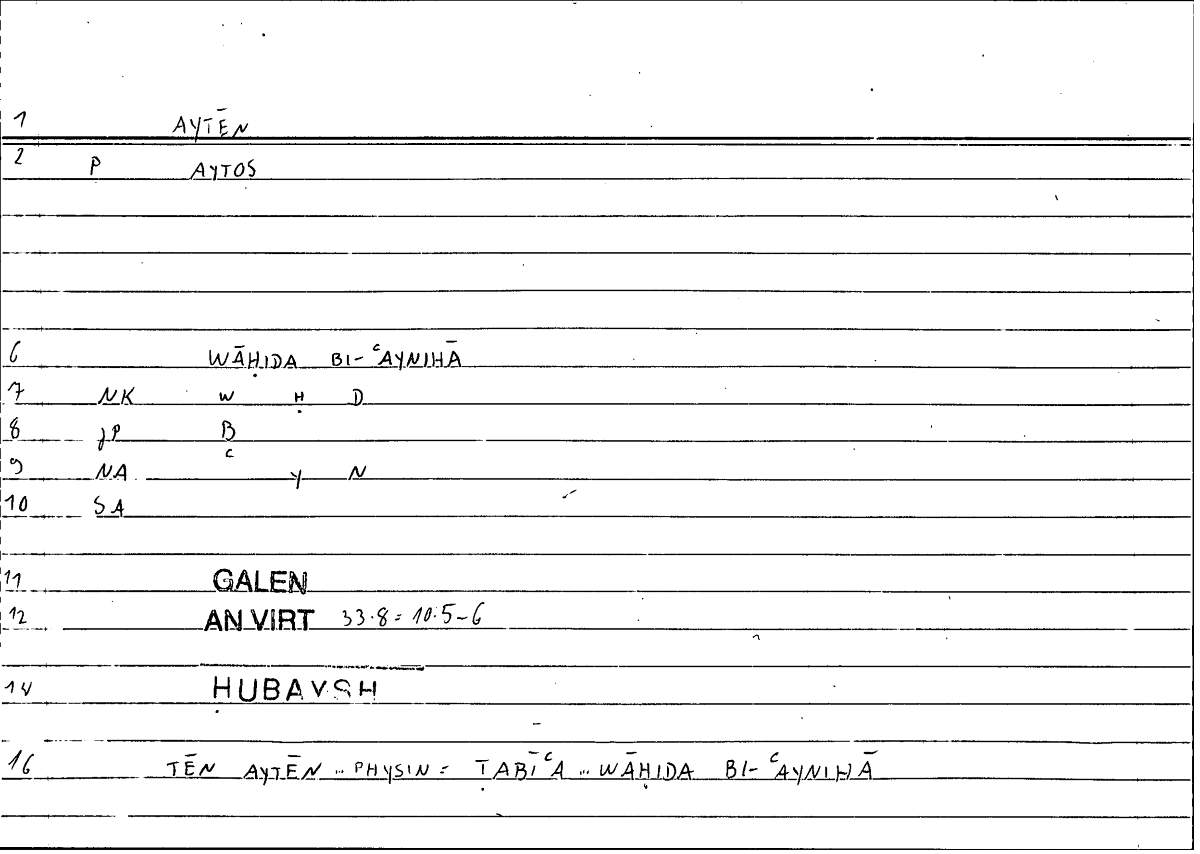 1 AYTĒN
2 P AYTOS
6 WĀḤIDA BI-ᶜAYNIHĀ
7 NK W Ḥ D
8 JP B
9 NA ᶜ Y N
10 SA
11 GALEN
12 AN VIRT 33.8 = 10.5-6
14 ḤUBAYSH
16 TĒN AYTĒN .. PHYSIN = ṬABĪᶜA .. WĀḤIDA BI-ᶜAYNIHĀ